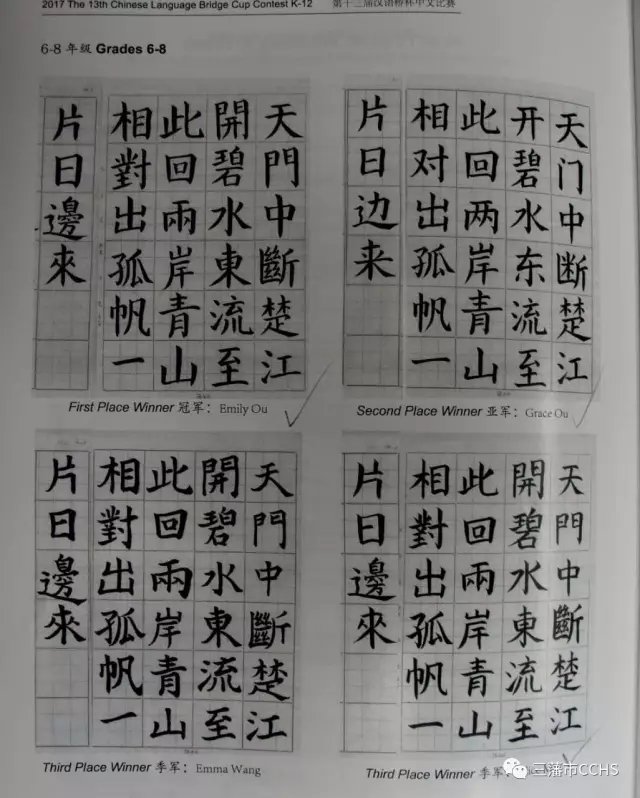 2017 The 13th Chinese Language Bridge Cup Contest K-12 第十三届汉语桥杯中文比赛
6-8 年级 Grades 6-8
天門中斷楚江
開碧水東流至
此回兩岸青山
相對出孤帆一
片日邊來
First Place Winner 冠军：Emily Ou
天门中断楚江
开碧水东流至
此回两岸青山
相对出孤帆一
片日边来
Second Place Winner 亚军：Grace Ou
天門中斷楚江
開碧水東流至
此回兩岸青山
相對出孤帆一
片日邊來
Third Place Winner 季军：Emma Wang
天門中斷楚江
開碧水東流至
此回兩岸青山
相對出孤帆一
片日邊來
Third Place Winner 季军：
三藩市CCHS